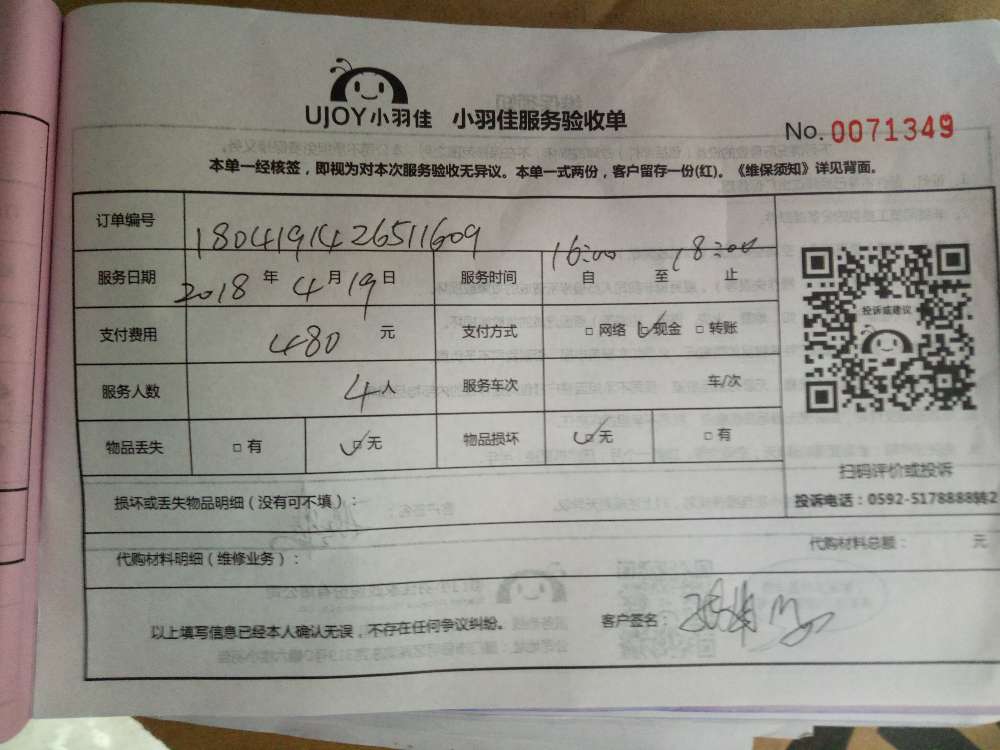 UJOY小羽佳 小羽佳服务验收单
No. 0071349
本单一经核签，即视为对本次服务验收无异议。本单一式两份，客户留存一份(红)。《维保须知》详见背面。
订单编号 1804191426511609
服务日期 2018 年 4 月 19 日 服务时间 16:00 自 至 18:00 止
支付费用 480 元 支付方式 □ 网络 ☑ 现金 □ 转账
投诉或建议
服务人数 4 人 服务车次 车/次
物品丢失 □ 有 ☑ 无 物品损坏 ☑ 无 □ 有
扫码评价或投诉
损坏或丢失物品明细（没有可不填）：
投诉电话：0592-5178888转2
代购材料明细（维修业务）： 代购材料总额： 元
以上填写信息已经本人确认无误，不存在任何争议纠纷。 客户签名：